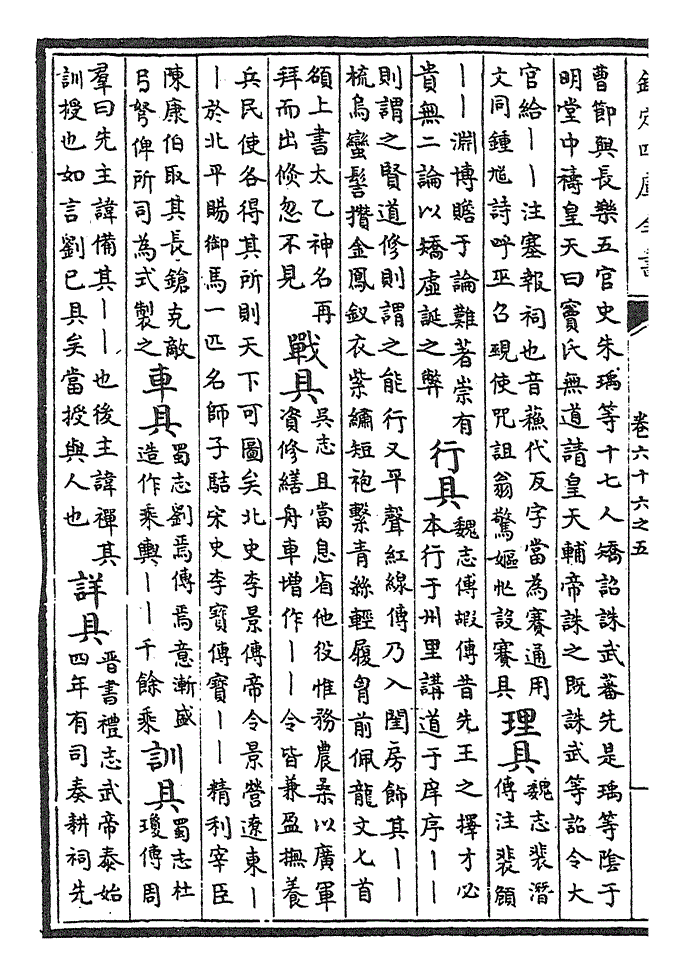 欽定四庫全書
卷六十六之五
一
曹節與長樂五官史朱瑀等十七人矯詔誅武蕃先是瑀等陰于
明堂中禱皇天曰竇氏無道請皇天輔帝誅之既誅武等詔令大
官給丨丨注塞報祠也音蘓代反字當為賽通用
文同鍾馗詩呼巫召覡使咒詛翁驚嫗忙設賽具
理具
魏志裴潛
傳注裴頠
丨丨淵博贍于論難著崇有
貴無二論以矯虛誕之弊
行具
魏志傅嘏傳昔先王之擇才必
本行于州里講道于庠序丨丨
則謂之賢道修則謂之能行又平聲紅線傳乃入閨房飾其丨丨
梳烏蠻髻攢金鳳釵衣紫繡短袍繫青絲輕履胷前佩龍文匕首
頟上書太乙神名再
拜而出倐忽不見
戰具
吳志且當息省他役惟務農桑以廣軍
資修繕舟車增作丨丨令皆兼盈撫養
兵民使各得其所則天下可圖矣北史李景傳帝令景營遼東丨
丨於北平賜御馬一匹名師子宋史李寶傳寶丨丨精利宰臣
陳康伯取其長鎗克敵
弓弩俾所司為式製之
車具
蜀志劉焉傳焉意漸盛
造作乘輿丨丨千餘乘
訓具
蜀志杜
瓊傳周
羣曰先主諱備其丨丨也後主諱禪其
訓授也如言劉已具矣當授與人也
詳具
晉書禮志武帝泰始
四年有司奏耕祠先